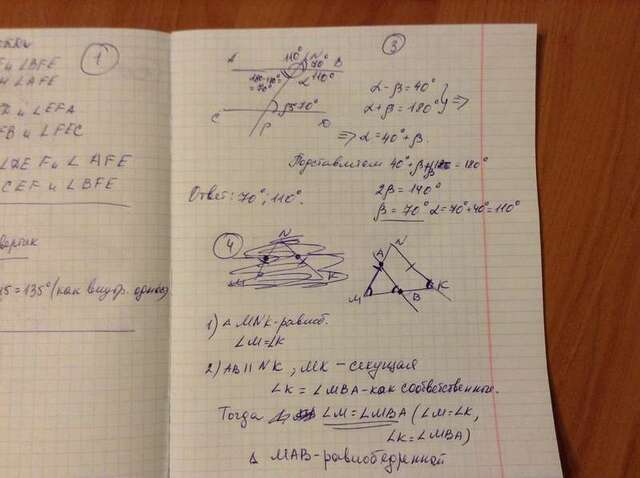 1
∠BFE
∠AFE
и ∠EFA
и ∠FEC
и ∠AFE
CEF и ∠BFE
=135° (как внутр. одност.)
3
110° N
70° B
180°-110°=70°
α 110°
C β=70° D
P
α-β=40°
α+β=180° } =>
=> α=40°+β.
Подставляем 40°+β+β=180°
2β=140°
β=70° α=70°+40°=110°
Ответ: 70°; 110°.
4
N
M K
A N
M B K
1) △ MNK-равноб.
∠M=∠K
2) AB || NK, MK – секущая
∠K = ∠MBA – как соответственные.
Тогда ∠M=∠MBA (∠M=∠K,
∠K=∠MBA)
△ MAB – равнобедренный